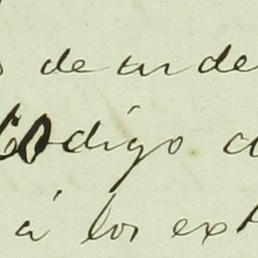 de un de
Código
á los ext